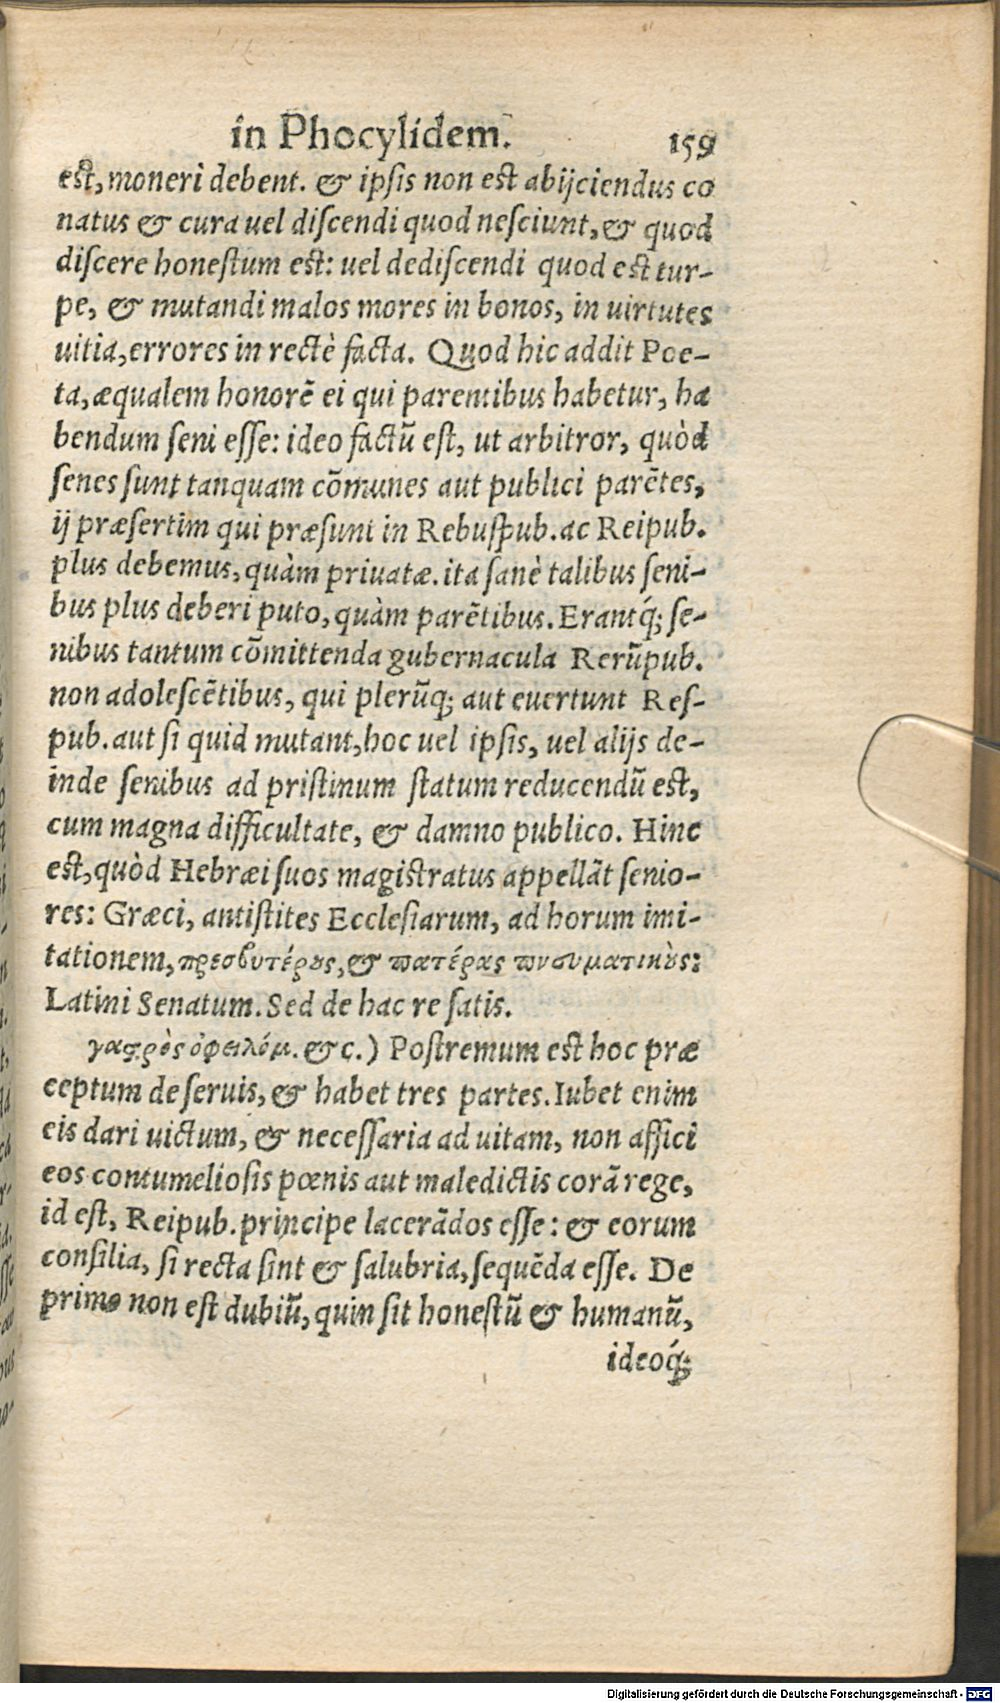 in Phocylidem. 159
est, moneri debent. & ipsis non est abijciendus co
natus & cura uel discendi quod nesciunt, & quod
discere honestum est: uel dediscendi quod est tur-
pe, & mutandi malos mores in bonos, in uirtutes
uitia, errores in rectè facta. Quod hic addit Poe-
ta, æqualem honorē ei qui parentibus habetur, ha
bendum seni esse: ideo factū est, ut arbitror, quòd
senes sunt tanquam cōmunes aut publici parētes,
ij præsertim qui præsunt in Rebuspub. ac Reipub.
plus debemus, quàm priuatæ. ita sanè talibus seni-
bus plus deberi puto, quàm parētibus. Erantq́; se-
nibus tantum cōmittenda gubernacula Rerūpub.
non adolescētibus, qui plerūq; aut euertunt Res-
pub. aut si quid mutant, hoc uel ipsis, uel alijs de-
inde senibus ad pristinum statum reducendū est,
cum magna difficultate, & damno publico. Hinc
est, quòd Hebræi suos magistratus appellāt senio-
res: Græci, antistites Ecclesiarum, ad horum imi-
tationem, πρεσβυτέρους, & πατέρας πνευματικοὺς:
Latini Senatum. Sed de hac re satis.
γαστρὸς ὀφειλόμ. &c.) Postremum est hoc præ
ceptum de seruis, & habet tres partes. Iubet enim
eis dari uictum, & necessaria ad uitam, non affici
eos contumeliosis pœnis aut maledictis corā rege,
id est, Reipub. principe lacerādos esse: & eorum
consilia, si recta sint & salubria, sequēda esse. De
primo non est dubiū, quin sit honestū & humanū,
ideoq́;
Digitalisierung gefördert durch die Deutsche Forschungsgemeinschaft - DFG